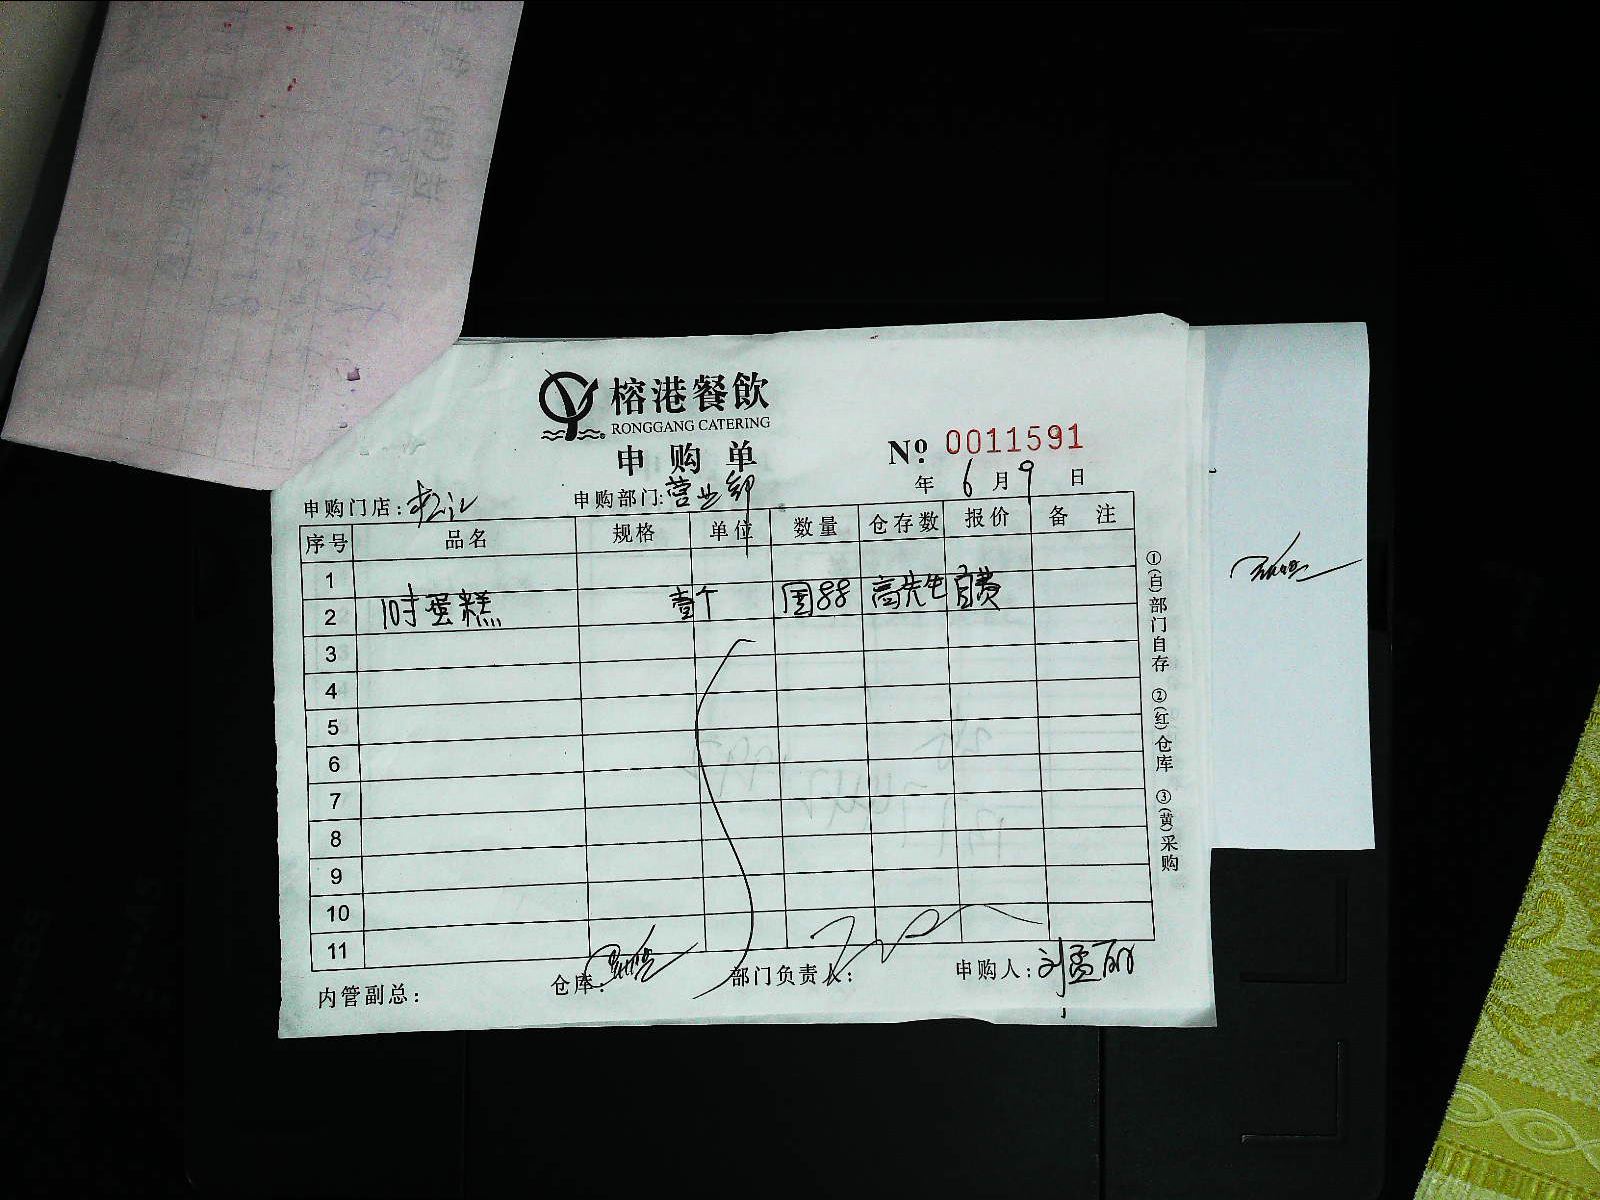 榕港餐飲
RONGGANG CATERING
申购单
№ 0011591
年 6 月 9 日
申购门店: 松江 申购部门: 营业部
序号 品名 规格 单位 数量 仓存数 报价 备注
1
2 10寸蛋糕 壹个 国88 高先生自费
3
4
5
6
7
8
9
10
11
内管副总: 仓库: 部门负责人: 申购人: 刘孟丽
①(白)部门自存 ②(红)仓库 ③(黄)采购